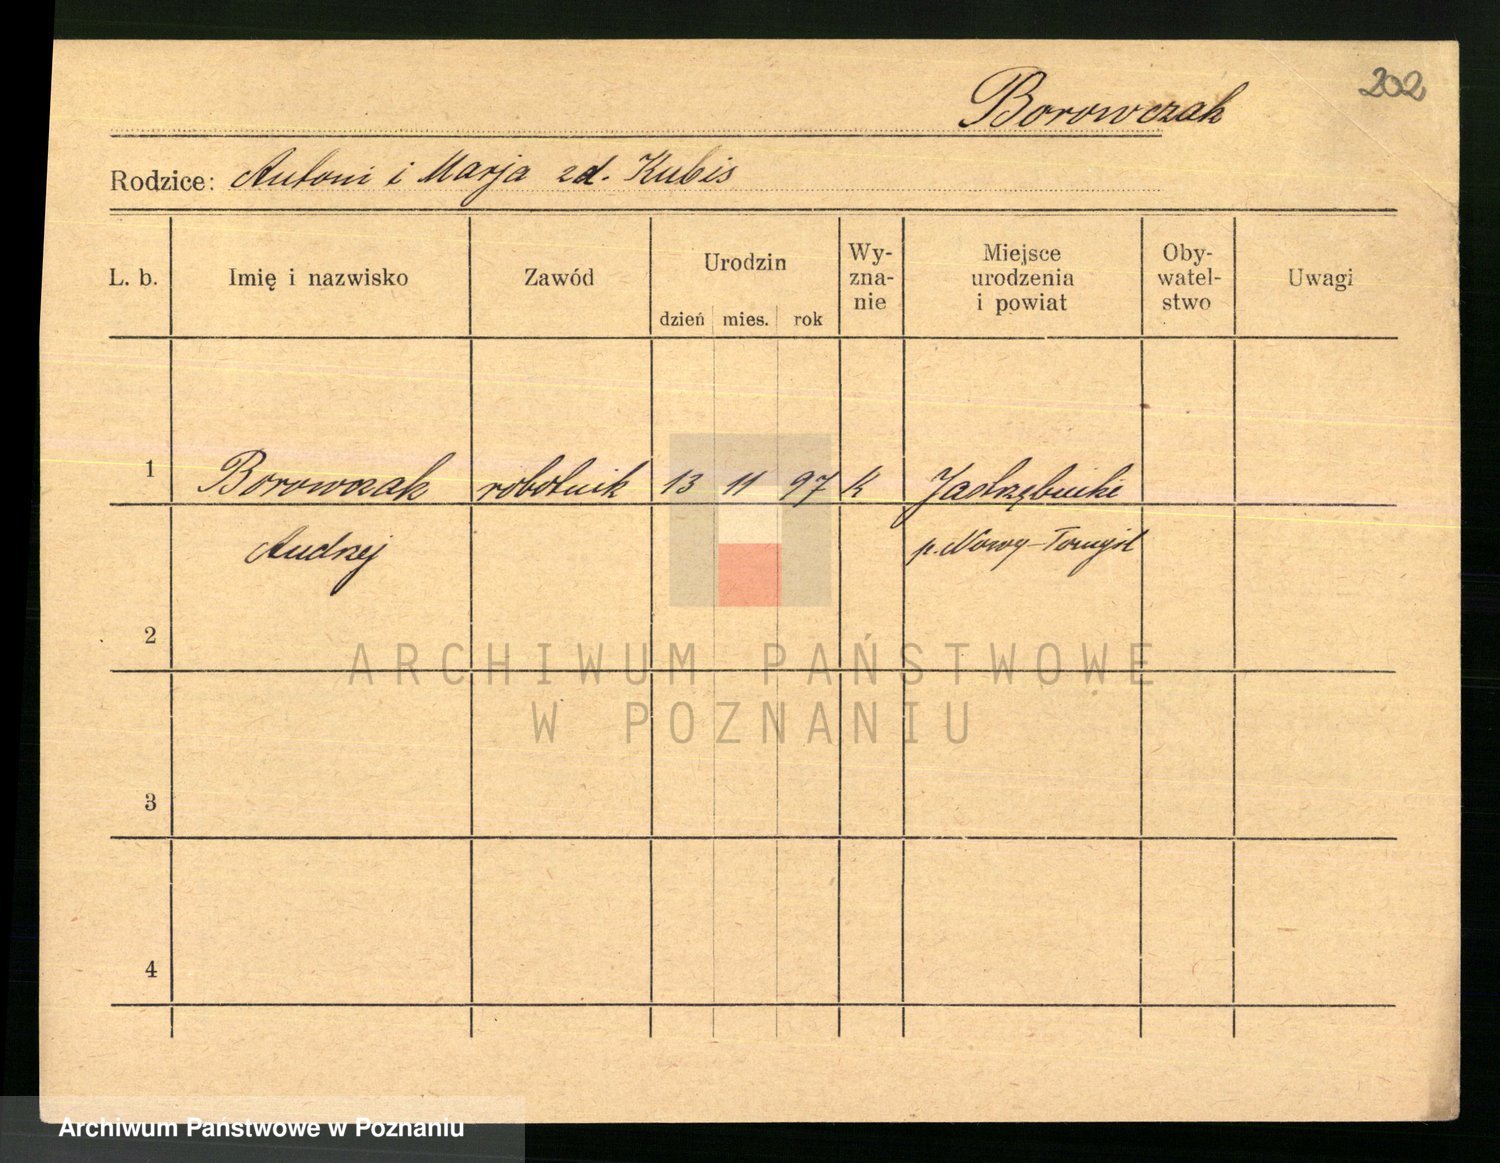 202
Borowczak
Rodzice: Antoni i Marja zd. Kubis
L. b. Imię i nazwisko Zawód Urodzin dzień mies. rok Wy-zna-nie Miejsce urodzenia i powiat Oby-watel-stwo Uwagi
1 Borowczak robotnik 13 11 97 K Jastrzębniki
Andrzej p. Nowy-Tomyśl
2
ARCHIWUM PAŃSTWOWE
W POZNANIU
3
4
Archiwum Państwowe w Poznaniu